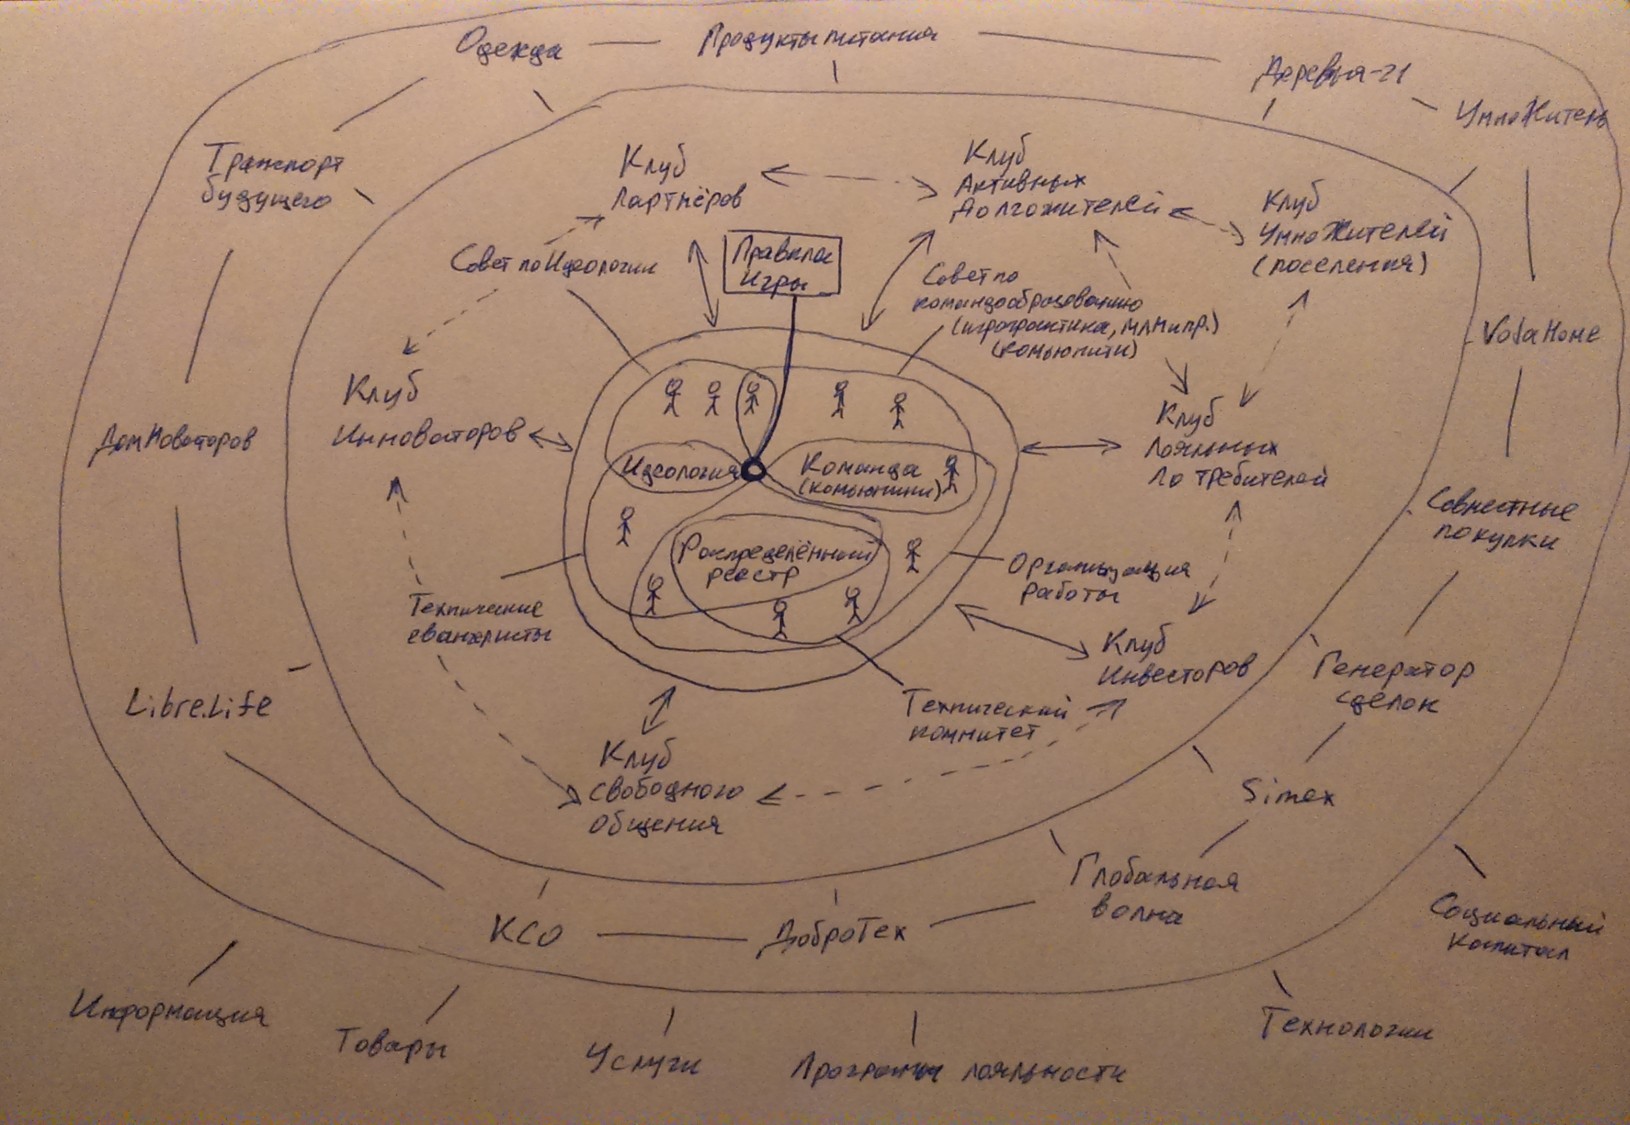 Одежда
Продукты питания
Деревня-21
УмноЖитель
Транспорт
будущего
Клуб
Партнёров
Клуб
Активных
Долгожителей
Клуб
УмноЖителей
(поселения)
Совет по Идеологии
Правила
Игры
Совет по
командообразованию
(игропрактика, МЛМ и пр.)
(комьюнити)
VodaHome
Клуб
Инноваторов
Клуб
Лояльных
Потребителей
ДомНоваторов
Идеология
Команда
(комьюнити)
Совместные
покупки
Распределённый
реестр
Организация
работы
Технические
евангелисты
Клуб
Инвесторов
Генератор
сделок
Libre.Life
Технический
комитет
Клуб
свободного
общения
Simex
Глобальная
волна
КСО
ДоброТех
Социальный
Капитал
Информация
Товары
Услуги
Программы лояльности
Технологии